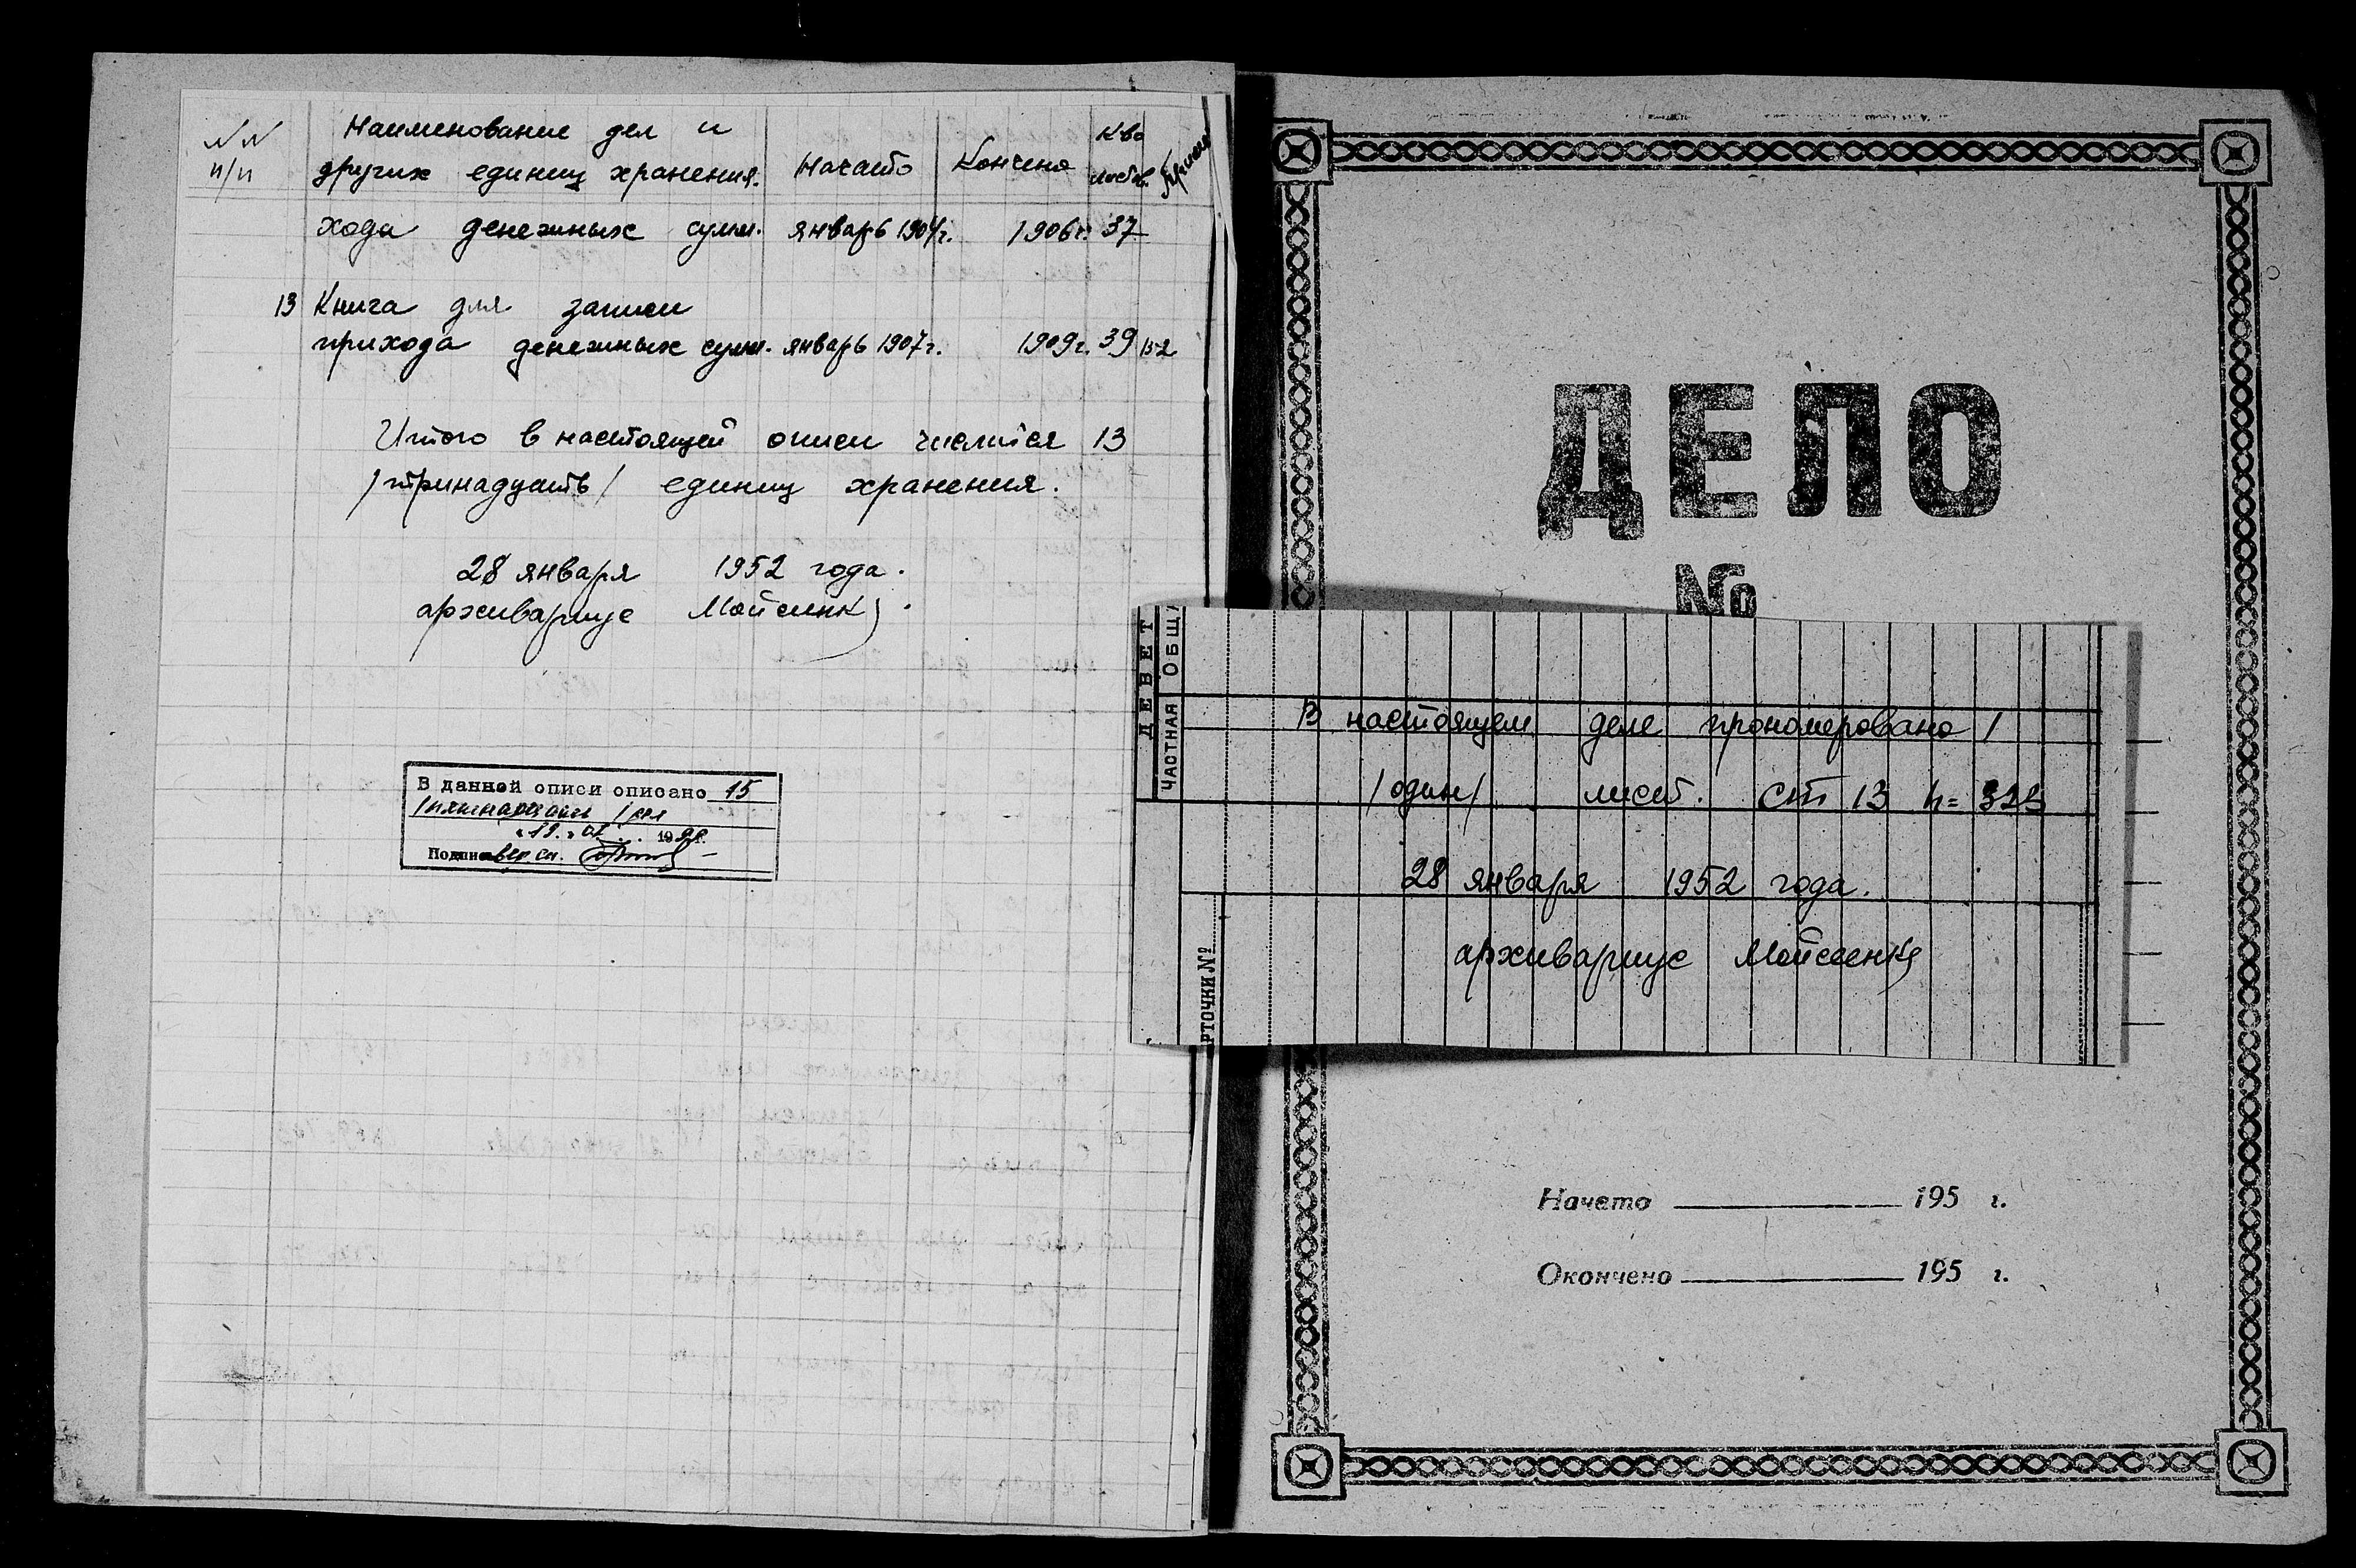 NN п/п
Наименование дел и других единиц хранения.
Начато
Кончено
К-во листов.
Примеч
хода денежных сумм. январь 1904г. 1906г. 37
13 Книга для записи
прихода денежных сумм. январь 1907г. 1909г. 39
Итого в настоящей описи числится 13
/тринадцать/ единиц хранения.
28 января 1952 года.
архивариус Мойсеенко
В данной описи описано 15
/пятнадцать/
19
Подпись
ДЕЛО
№
ДЕБЕТ
ЧАСТНАЯ ОБЩА
РТОЧКИ №
В настоящем деле прономеровано 1
/один/ лист. Ст 13 n= 323
28 января 1952 года.
архивариус Мойсеенко
Начато 195 г.
Окончено 195 г.